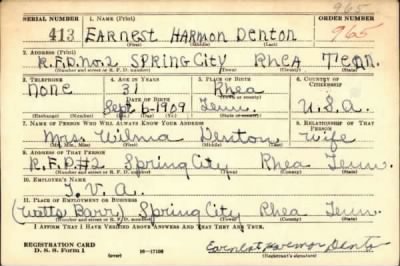 965
SERIAL NUMBER 1. NAME (Print) ORDER NUMBER
413 EARNEST HARMON DENTON 965
(First) (Middle) (Last)
2. ADDRESS (Print)
R.F.D. No. 2 SPRING CITY RHEA TENN.
(Number and street or R. F. D. number) (Town) (County) (State)
3. TELEPHONE 4. AGE IN YEARS 5. PLACE OF BIRTH 6. COUNTRY OF CITIZENSHIP
None 31 Rhea
DATE OF BIRTH
Sept. 6-1909 Tenn. U.S.A.
(Exchange) (Number) (Mo.) (Day) (Yr.) (State or country)
7. NAME OF PERSON WHO WILL ALWAYS KNOW YOUR ADDRESS 8. RELATIONSHIP OF THAT PERSON
Mrs. Wilma Denton Wife
(Mr., Mrs., Miss) (First) (Middle) (Last)
9. ADDRESS OF THAT PERSON
R.F.D.#2 Spring City Rhea Tenn.
(Number and street or R. F. D. number) (Town) (County) (State)
10. EMPLOYER'S NAME
T.V.A.
11. PLACE OF EMPLOYMENT OR BUSINESS
(Watts Barr) Spring City Rhea Tenn.
(Number and street or R. F. D. number) (Town) (County) (State)
I AFFIRM THAT I HAVE VERIFIED ABOVE ANSWERS AND THAT THEY ARE TRUE.
REGISTRATION CARD
D. S. S. Form 1 (over) Earnest Harmon Denton
(Registrant's signature)